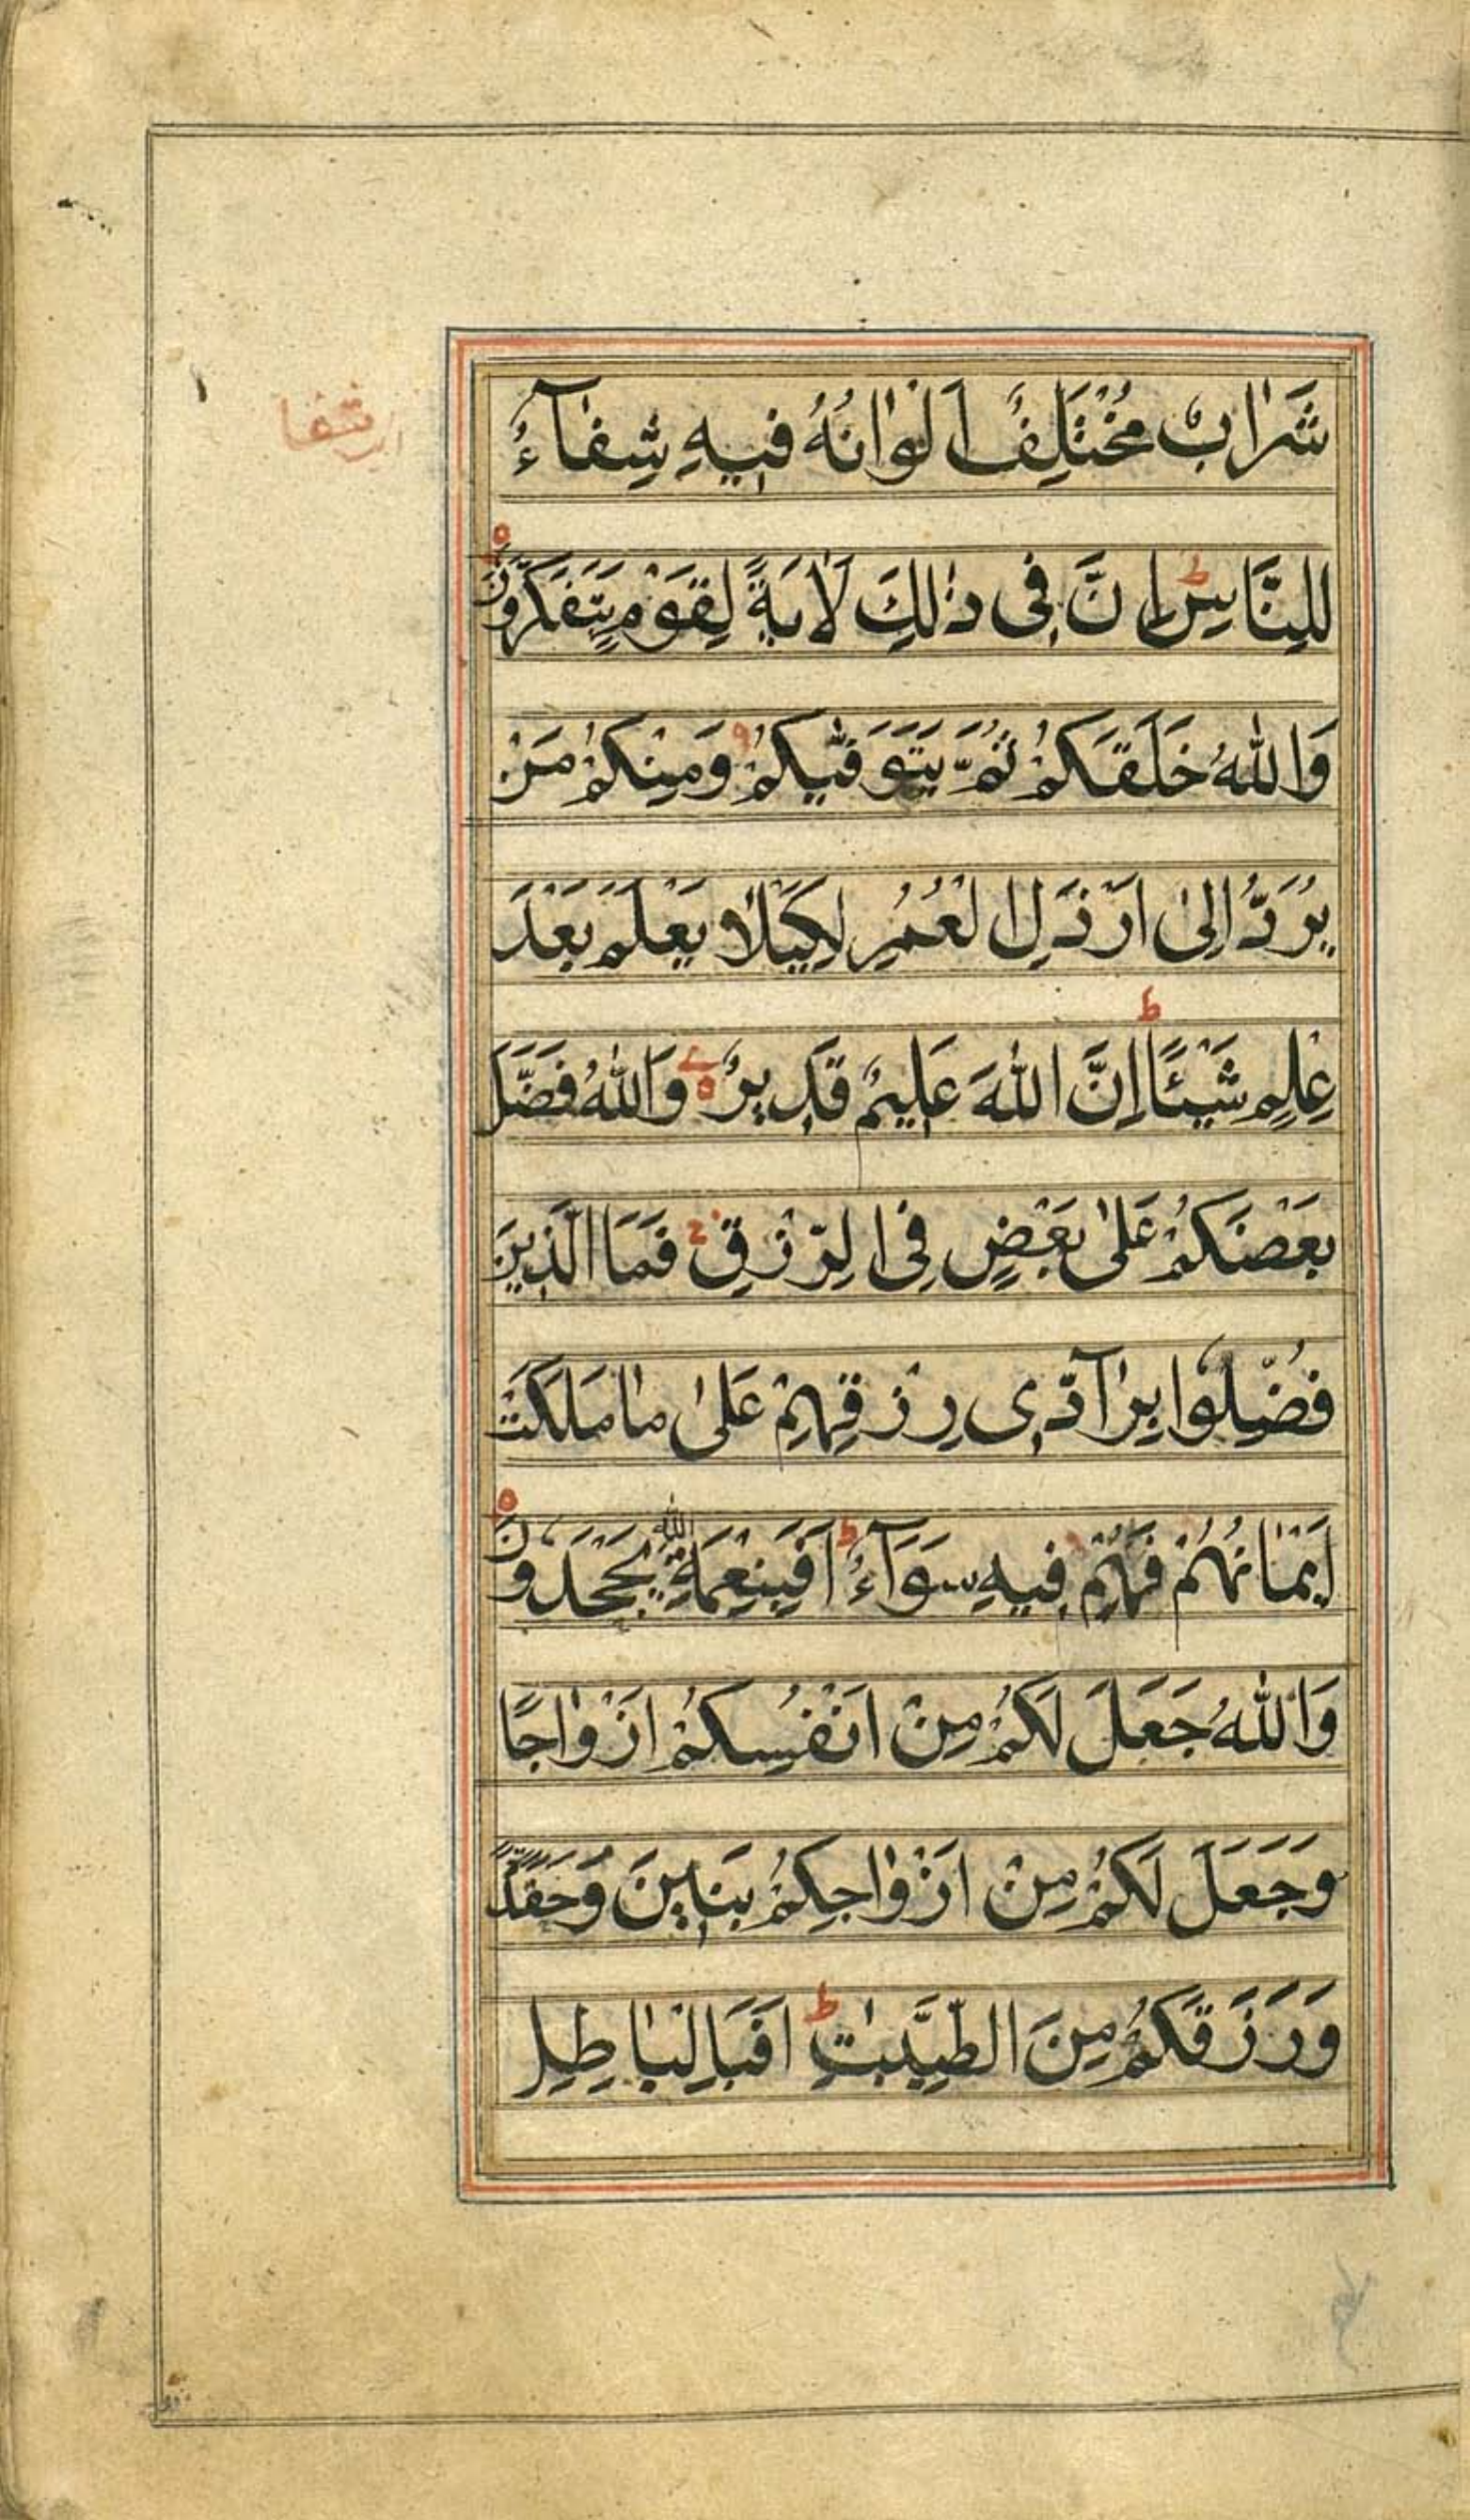 شَرَابٌ مُخْتَلِفٌ اَلْوَانُهُ فِيهِ شِفَآءٌ
لِلنَّاسِ ط اِنَّ فِي ذٰلِكَ لَاٰيَةً لِقَوْمٍ يَتَفَكَّرُونَ
وَاللّٰهُ خَلَقَكُمْ ثُمَّ يَتَوَفّٰيكُمْ وَمِنْكُمْ مَنْ
يُرَدُّ اِلىٰ اَرْذَلِ الْعُمُرِ لِكَيْلَا يَعْلَمَ بَعْدَ
عِلْمٍ شَيْئًا ط اِنَّ اللّٰهَ عَلِيمٌ قَدِيرٌ وَاللّٰهُ فَضَّلَ
بَعْضَكُمْ عَلىٰ بَعْضٍ فِي الرِّزْقِ فَمَا الَّذِينَ
فُضِّلُوا بِرَآدِّي رِزْقِهِمْ عَلىٰ مَا مَلَكَتْ
اَيْمَانُهُمْ فَهُمْ فِيهِ سَوَآءٌ ط اَفَبِنِعْمَةِ اللّٰهِ يَجْحَدُونَ
وَاللّٰهُ جَعَلَ لَكُمْ مِنْ اَنْفُسِكُمْ اَزْوَاجًا
وَجَعَلَ لَكُمْ مِنْ اَزْوَاجِكُمْ بَنِينَ وَحَفَدَةً
وَرَزَقَكُمْ مِنَ الطَّيِّبٰتِ ط اَفَبِالْبَاطِلِ